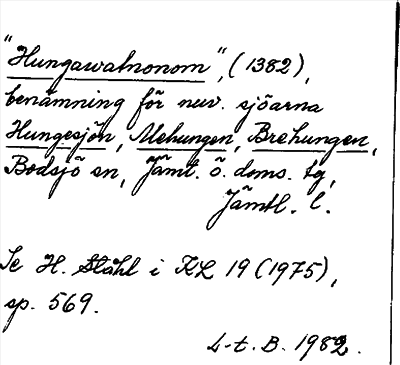 "Hungawatnonom", (1382),
benämning för nuv. sjöarna
Hungesjön, Mehungen, Brehungen,
Bodsjö sn, Jämt. ö. doms. tg,
Jämtl. l.
Se H. Ståhl i KL 19 (1975),
sp. 569.
L-t. B. 1982.